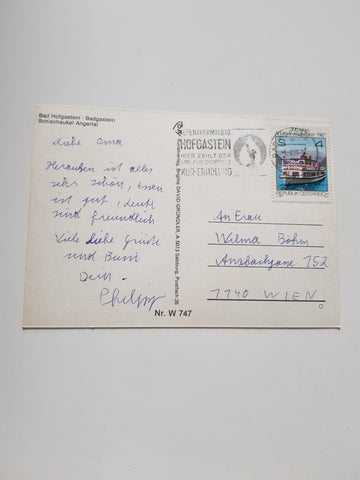 Bad Hofgastein - Badgastein
Schischaukel Angertal
Liebe Oma
Heraußen ist alles
sehr schön, essen
ist gut, Leute
sind freundlich
Viele liebe Grüße
und Bussi
Dein
Philipp
Nr. W 747
Brigitte DAVID-GRÜNDLER, A-5013 Salzburg, Postfach 35
ALPENTHERMALBAD
HOFGASTEIN
HIER ZÄHLT DER
URLAUB DOPPELT
KUR+ERHOLUNG
S 4
REPUBLIK ÖSTERREICH
An Frau
Wilma Böhm
Anzbachgasse 152
1140 WIEN